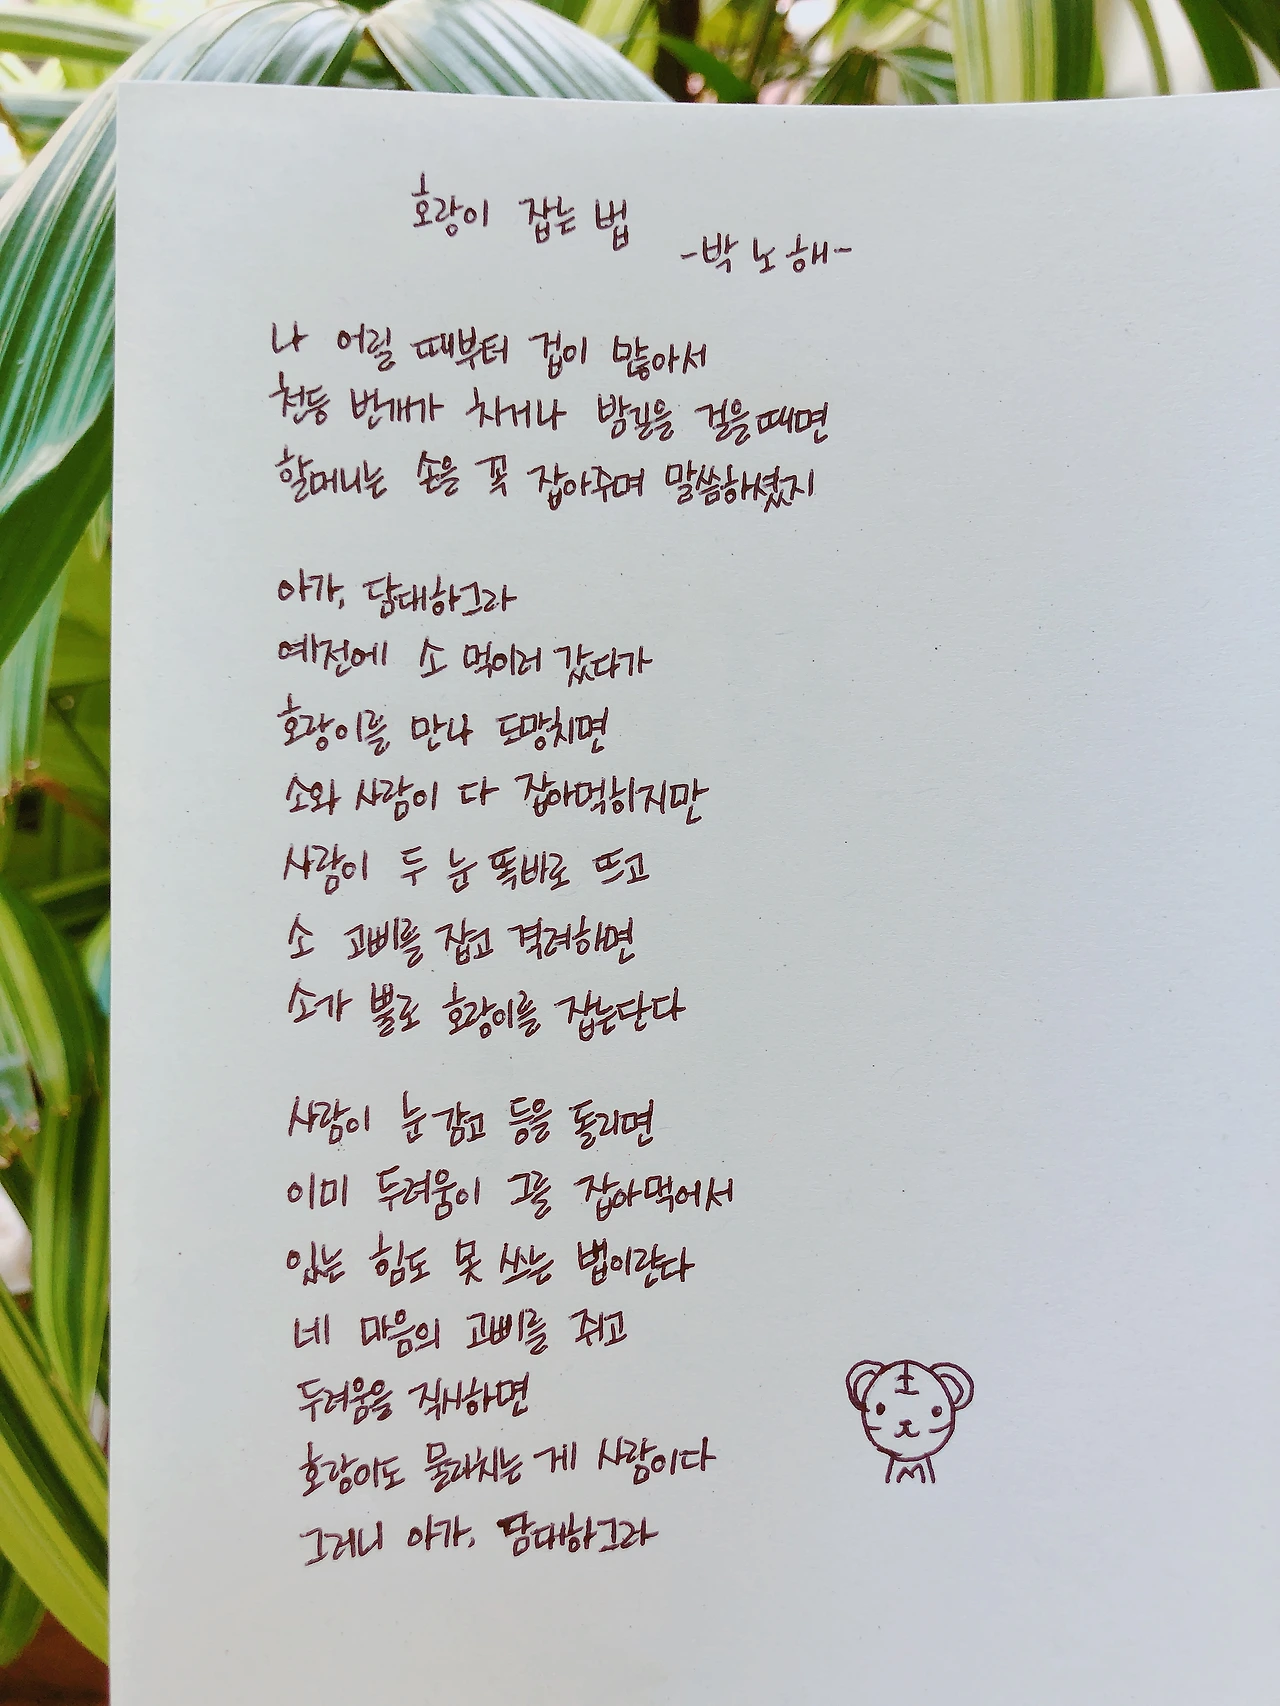 호랑이 잡는 법
-박노해-
나 어릴 때부터 겁이 많아서
천둥 번개가 치거나 밤길을 걸을때면
할머니는 손을 꼭 잡아주며 말씀하셨지
아가, 담대하그라
예전에 소 먹이러 갔다가
호랑이를 만나 도망치면
소와 사람이 다 잡아먹히지만
사람이 두 눈 똑바로 뜨고
소 고삐를 잡고 격려하면
소가 뿔로 호랑이를 잡는단다
사람이 눈 감고 등을 돌리면
이미 두려움이 그를 잡아먹어서
있는 힘도 못 쓰는 법이란다
네 마음의 고삐를 쥐고
두려움을 직시하면
호랑이도 물리치는 게 사람이다
그러니 아가, 담대하그라